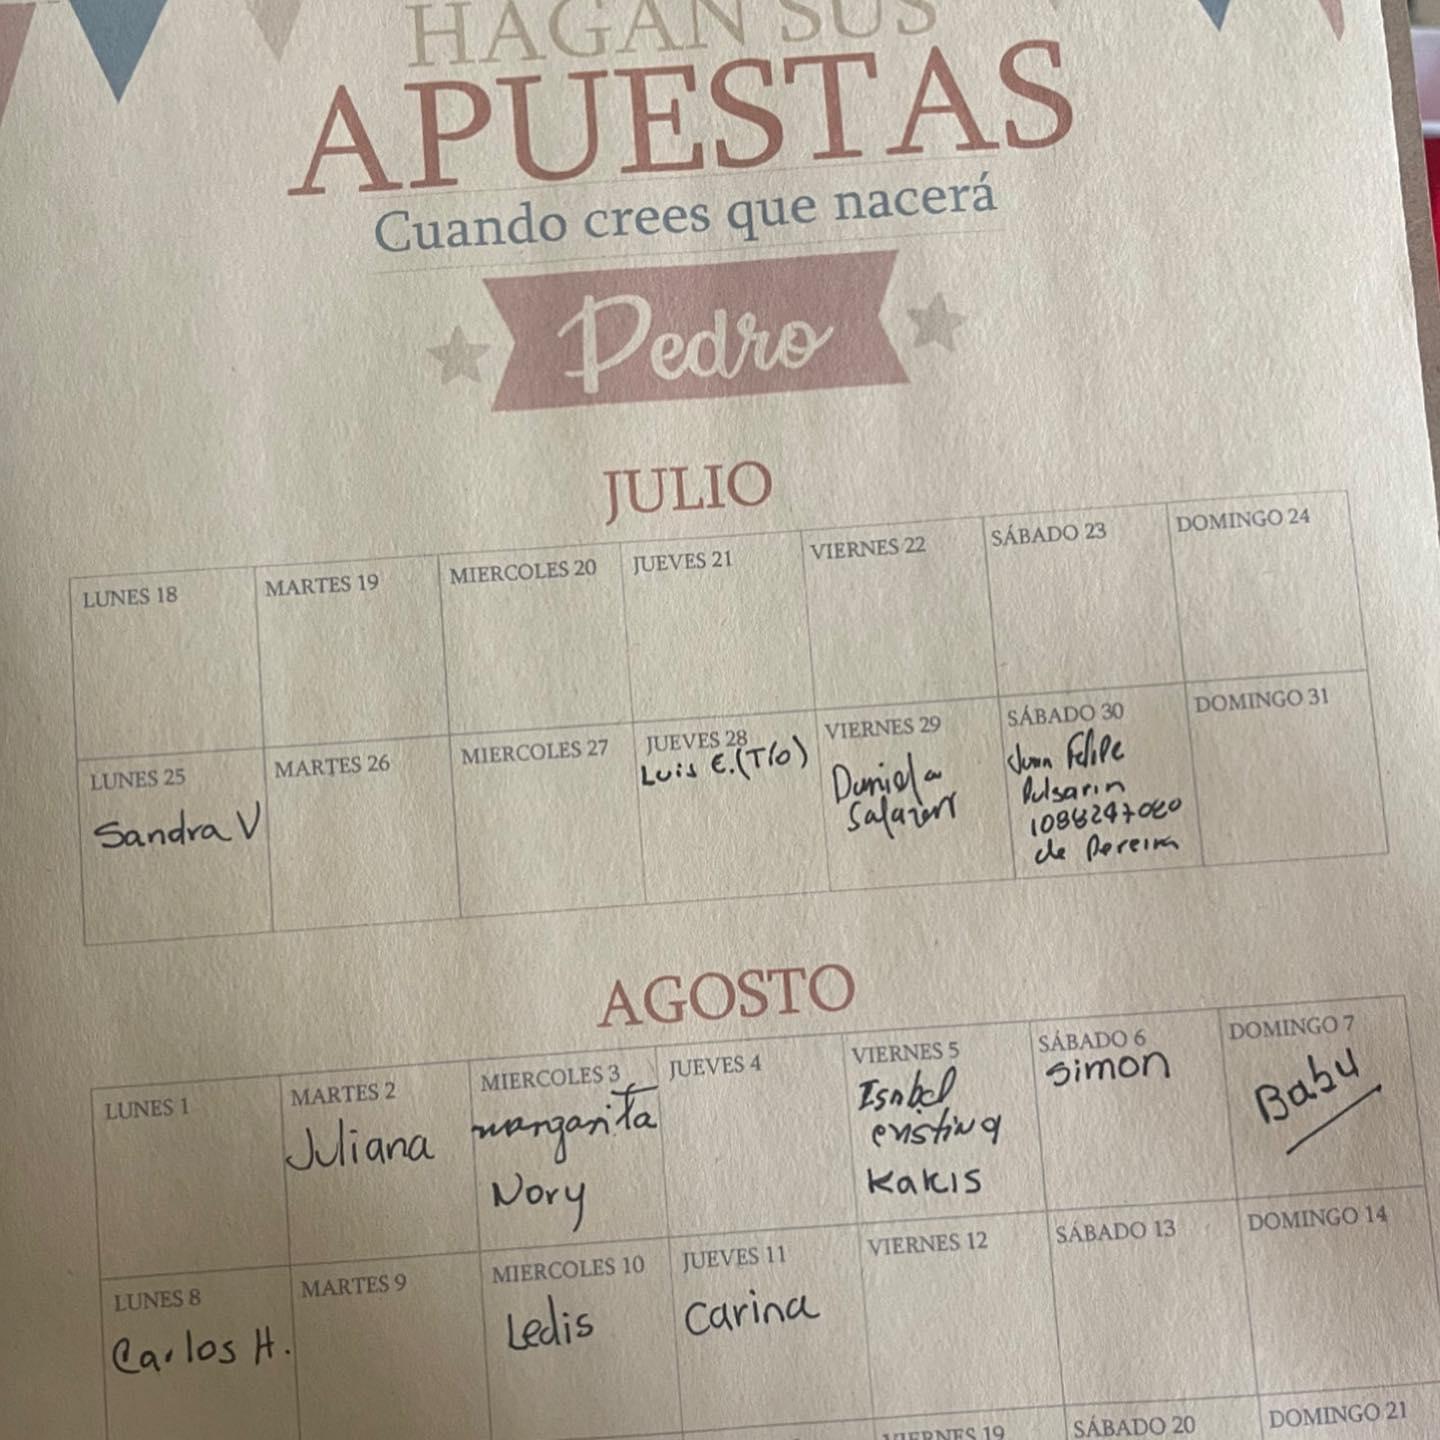 HAGAN SUS
APUESTAS
Cuando crees que nacerá
Pedro
JULIO
LUNES 18
MARTES 19
MIERCOLES 20
JUEVES 21
VIERNES 22
SÁBADO 23
DOMINGO 24
LUNES 25
Sandra V
MARTES 26
MIERCOLES 27
JUEVES 28
Luis E. (Tío)
VIERNES 29
Daniela
Salazar
SÁBADO 30
Juan Felipe
Pulgarin
de Pereira
DOMINGO 31
AGOSTO
LUNES 1
MARTES 2
Juliana
MIERCOLES 3
margarita
Nory
JUEVES 4
VIERNES 5
Isabel
cristina
Kakis
SÁBADO 6
Simon
DOMINGO 7
Babu
LUNES 8
Carlos H.
MARTES 9
MIERCOLES 10
Ledis
JUEVES 11
Carina
VIERNES 12
SÁBADO 13
DOMINGO 14
VIERNES 19
SÁBADO 20
DOMINGO 21